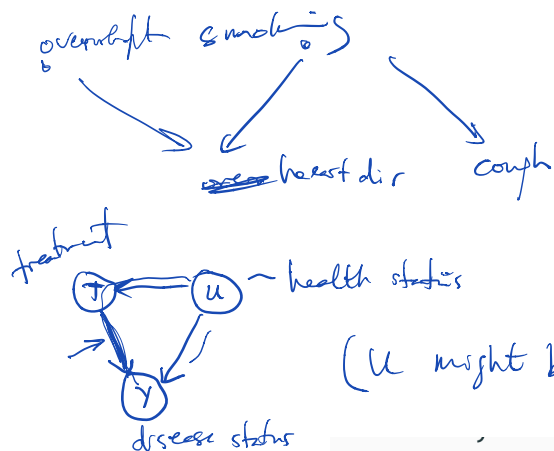 overweight smoking
heart dis
cough
treatment
T
U ~ health status
Y
(U might b
disease status